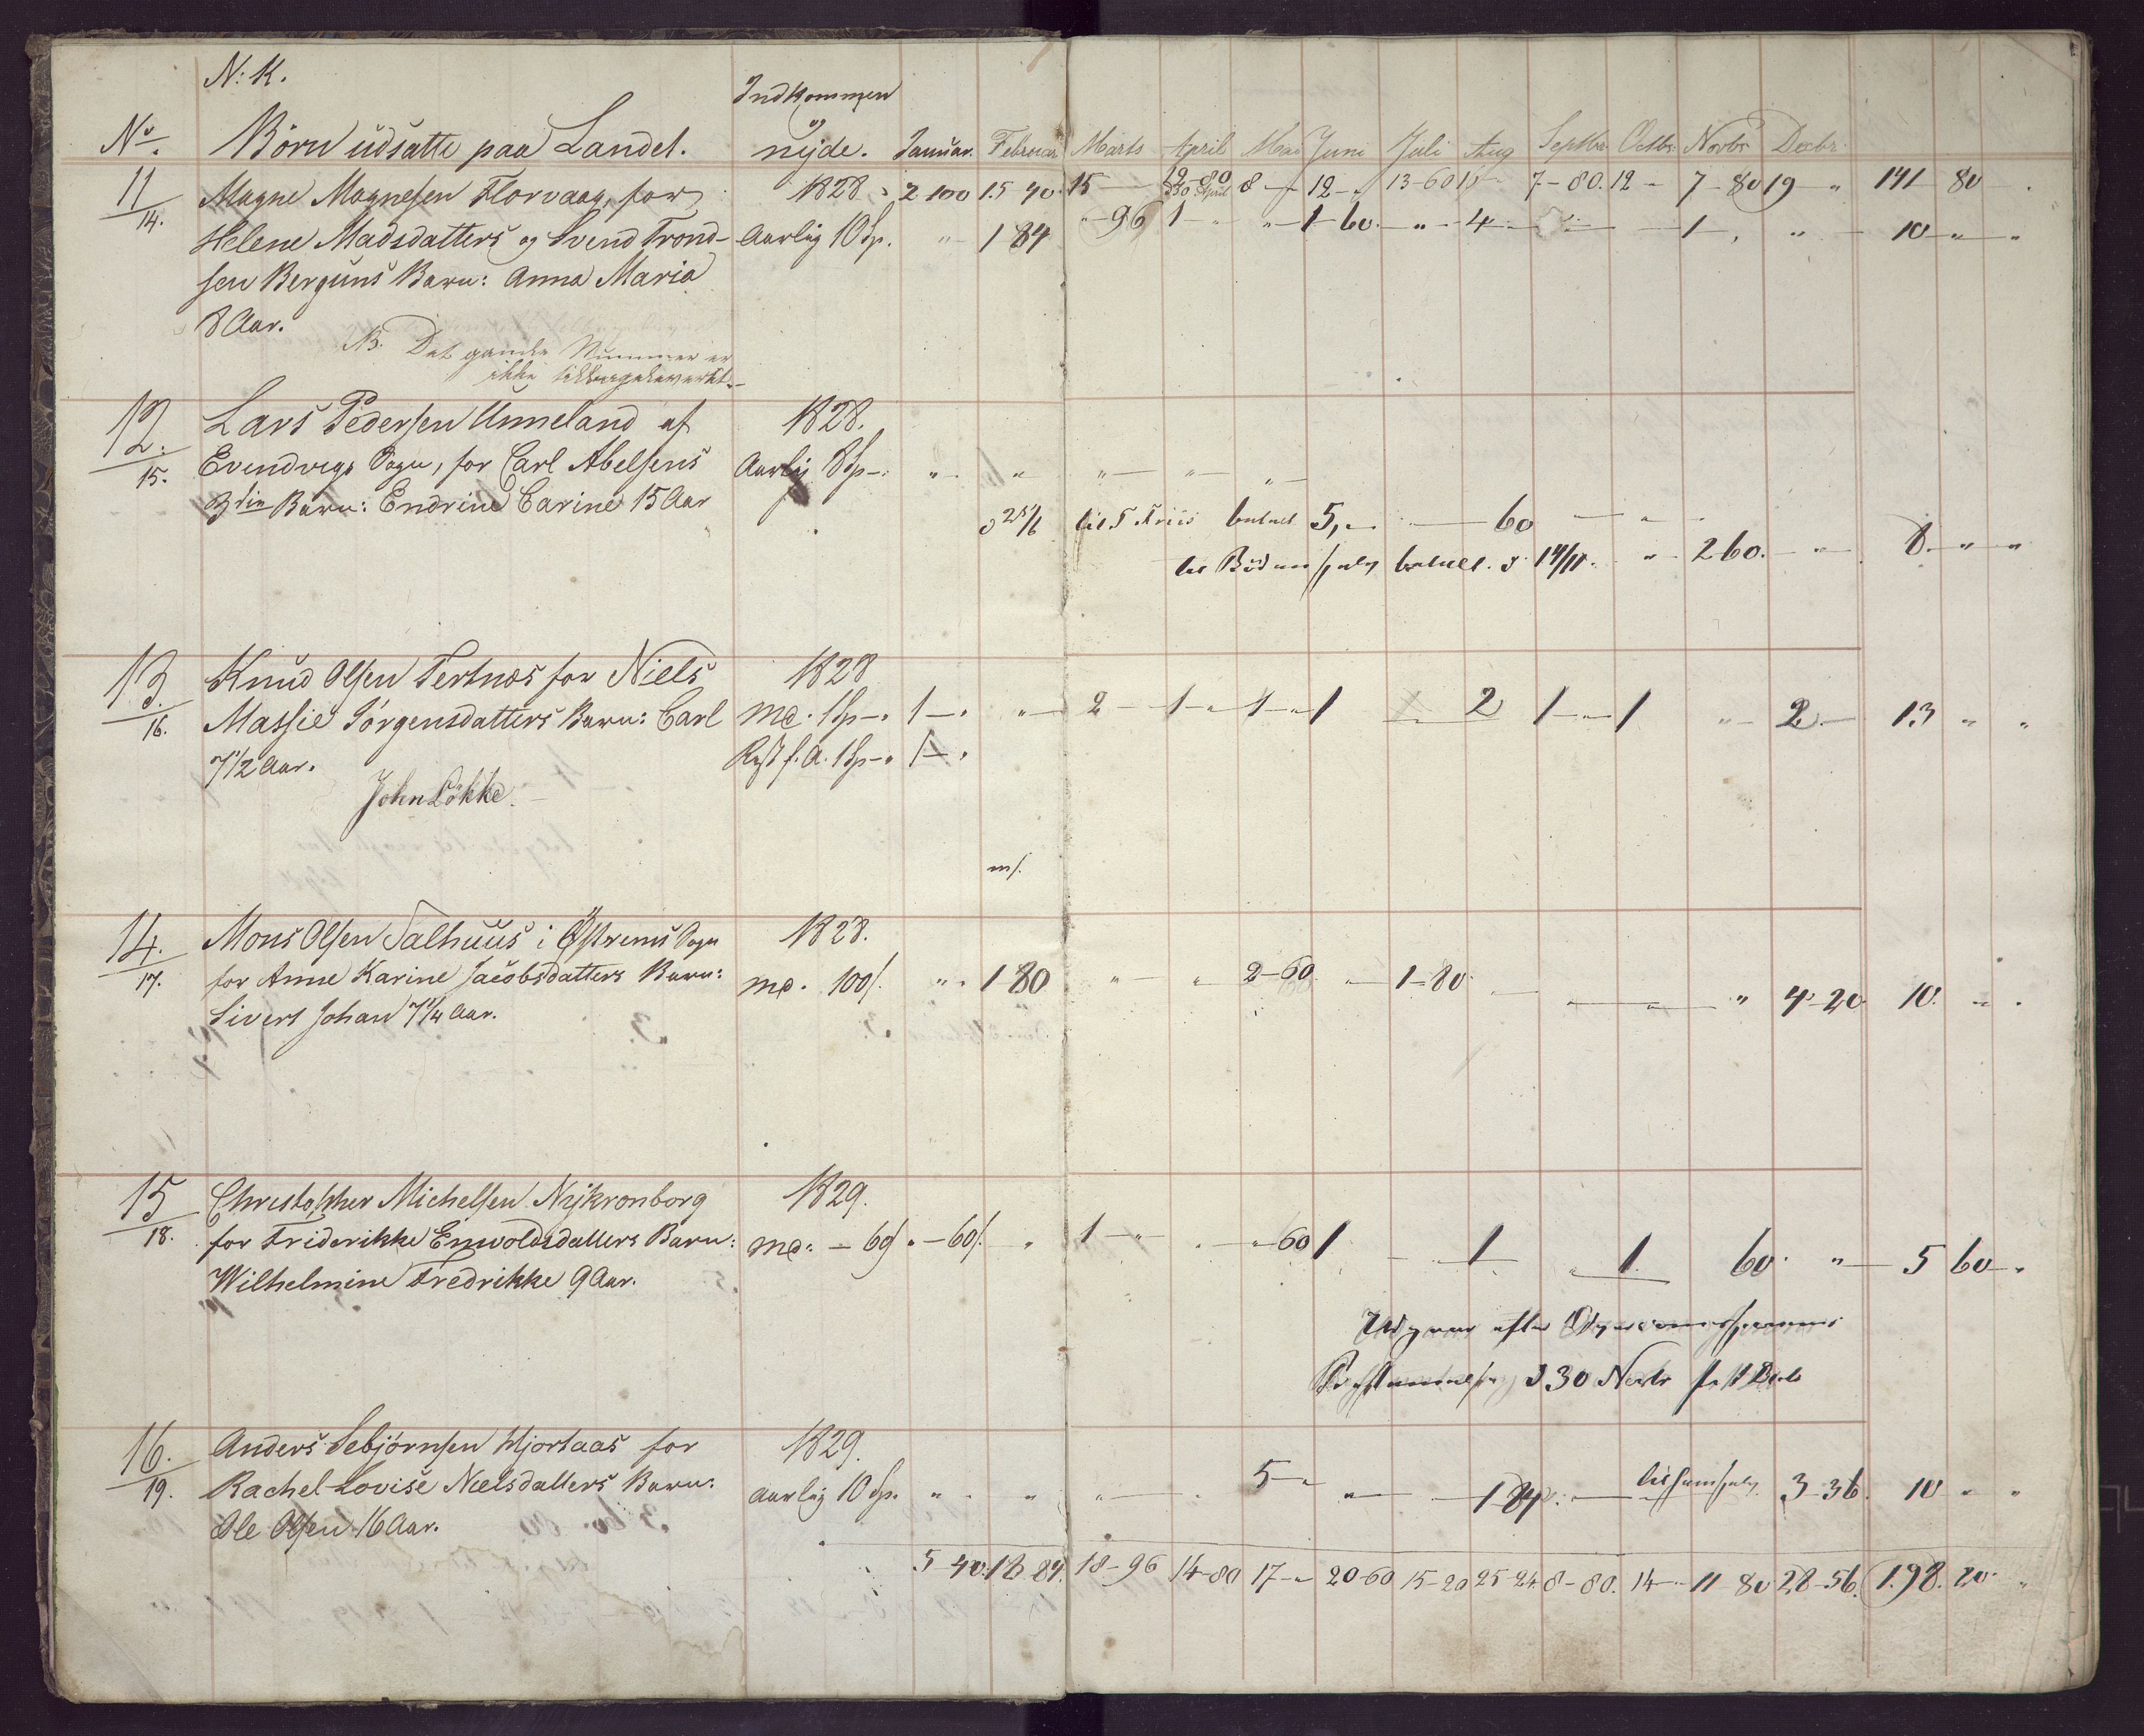 N: K.
Indkommen
og
No. Börn udsatte paa Landet. nyde. Januar. Februar Marts April Mai Juni Juli Aug Septbr Octbr: Novbr Decbr.
11/14. Magne Magnesen Florvaag, for 1828 2 100 15 40 15 12-80 8 12 13-60 7-80. 12 7-80 19 141 80
30 April
Helene Madsdatters og Svend Trond- Aarlig 10 Sp. " 1 84 "-96 1 " 1-60. " 4 1 " 10 " "
sen Berguns Barn: Anna Maria
8 Aar.
NB. Det gamle Nummer er
ikke
12./15. Lars Pedersen Unneland af 1828.
Evendvigs Sogn, for Carl Abelsens Aarlig 8 Sp-. " " " "
Barn: Endrine Carine 15 Aar
til T. Friis betalt 5, 60
betalt. d. 14/11. " 2 60. " 8 " "
13./16. Knud Olsen Tertnæs for Niels 1828
Massie Jörgensdatters Barn: Carl Md. 1 Sp-" 1-" " 2 1 1 1 2 1 1 " 2 13 " "
7 1/2 Aar. Rest f. A. 1 Sp-" 1-"
John Lökke.
m/.
14./17. Mons Olsen Salhuus i Sogn 1828.
for Anne Karine Jacobsdatters Barn: Md. 100/. " 1 80 " " 2-60 1-80 " 4-20 10. " .
Sivert Johan 7 1/4 Aar.
15/18. Christopher Michelsen Nykronborg 1829.
for Friderikke Enwoldsdatters Barn: Md: - 60/ -60/. " 1 " " 60 1 1 1 60. " 5 60 "
Wilhelmine Fredrikke 9 Aar.
efter
d 30 Novbr
16./19. Anders Sebjörnsen Hjortaas for 1829.
Rachel Lovise Nielsdatters Barn: aarlig 10 Sp. " " " 5 " " 1 84. 3-36. 10 " "
Ole Olsen 16 Aar.
5-40. 18 84. 18-96 14-80 17-" 20-60 15-20 25-24 8-80. 14-" 11 80 28-56. 198. 20. "